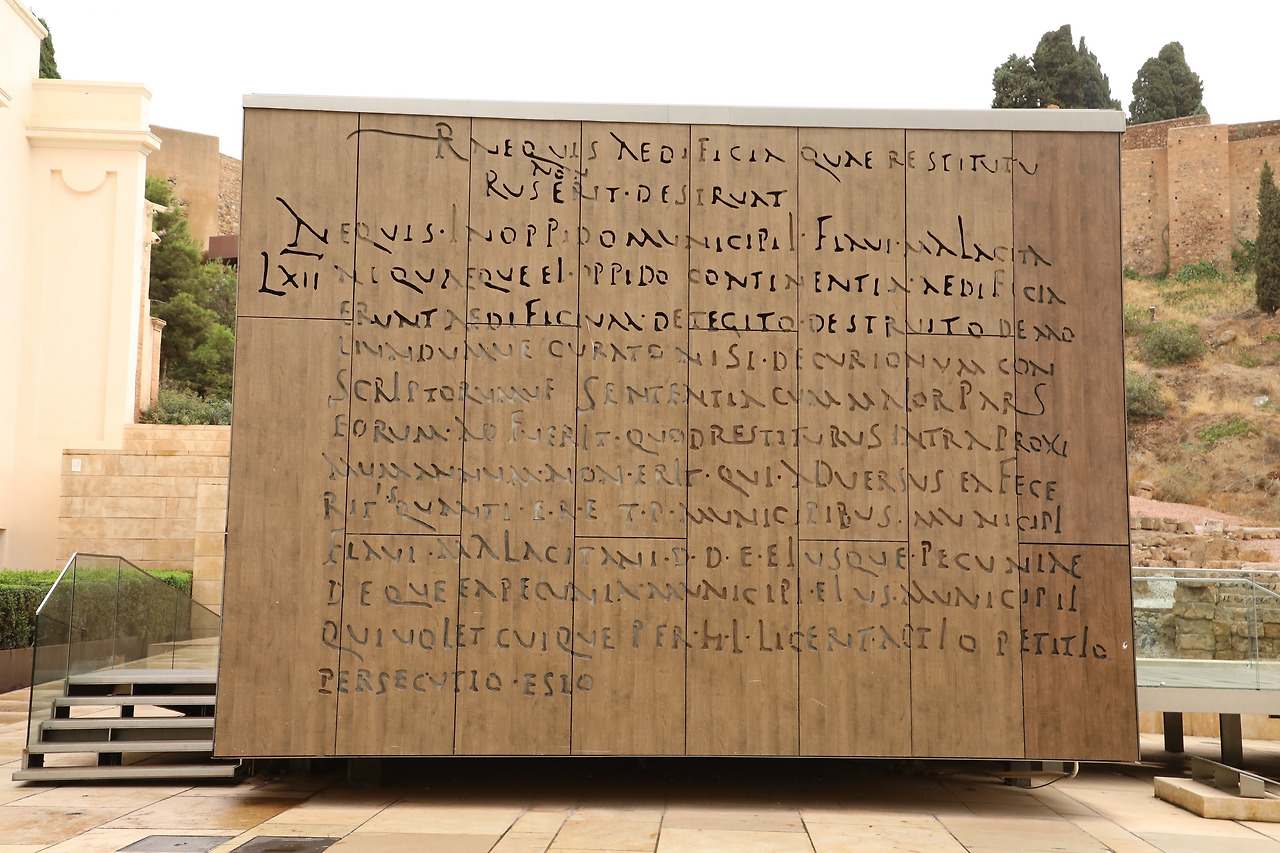 R NEQVIS AEDIFICIA QVAE RESTITVTV
NON
RVS ERIT·DESTRVAT
NEQVIS·INOPPIDOMVNICIPII·FLAVI·MALACITA
LXII NI QVAEQVEEI·OPPIDO CONTINENTIA·AEDIFICIA
ERVNT AEDIFICIVM·DETEGITO·DESTRVITO DEMO
LIVNDVMVE CVRATO NISI·DECVRIONVM CON
SCRIPTORVMVE SENTENTIA CVM MAIOR PARS
EORVM·AD FVERIT·QVODRESTITVRVS INTRA PROXI
MVMANNVM·NON·ERIT·QVI·ADVERSVS EA FECE
RIT IS QVANTI·E·R·E T·P·MVNICIPIBVS·MVNICIPI
FLAVI·MALACITANI·D·D·E·EIVSQVE·PECVNIAE
DEQVEEAPECVNIAMVNICIPI·EIVS·MVNICIPII
QVIVOLET CVIQVE PER·H·L·LICEBIT·ACTIO PETITIO
PERSECVTIO·ESTO